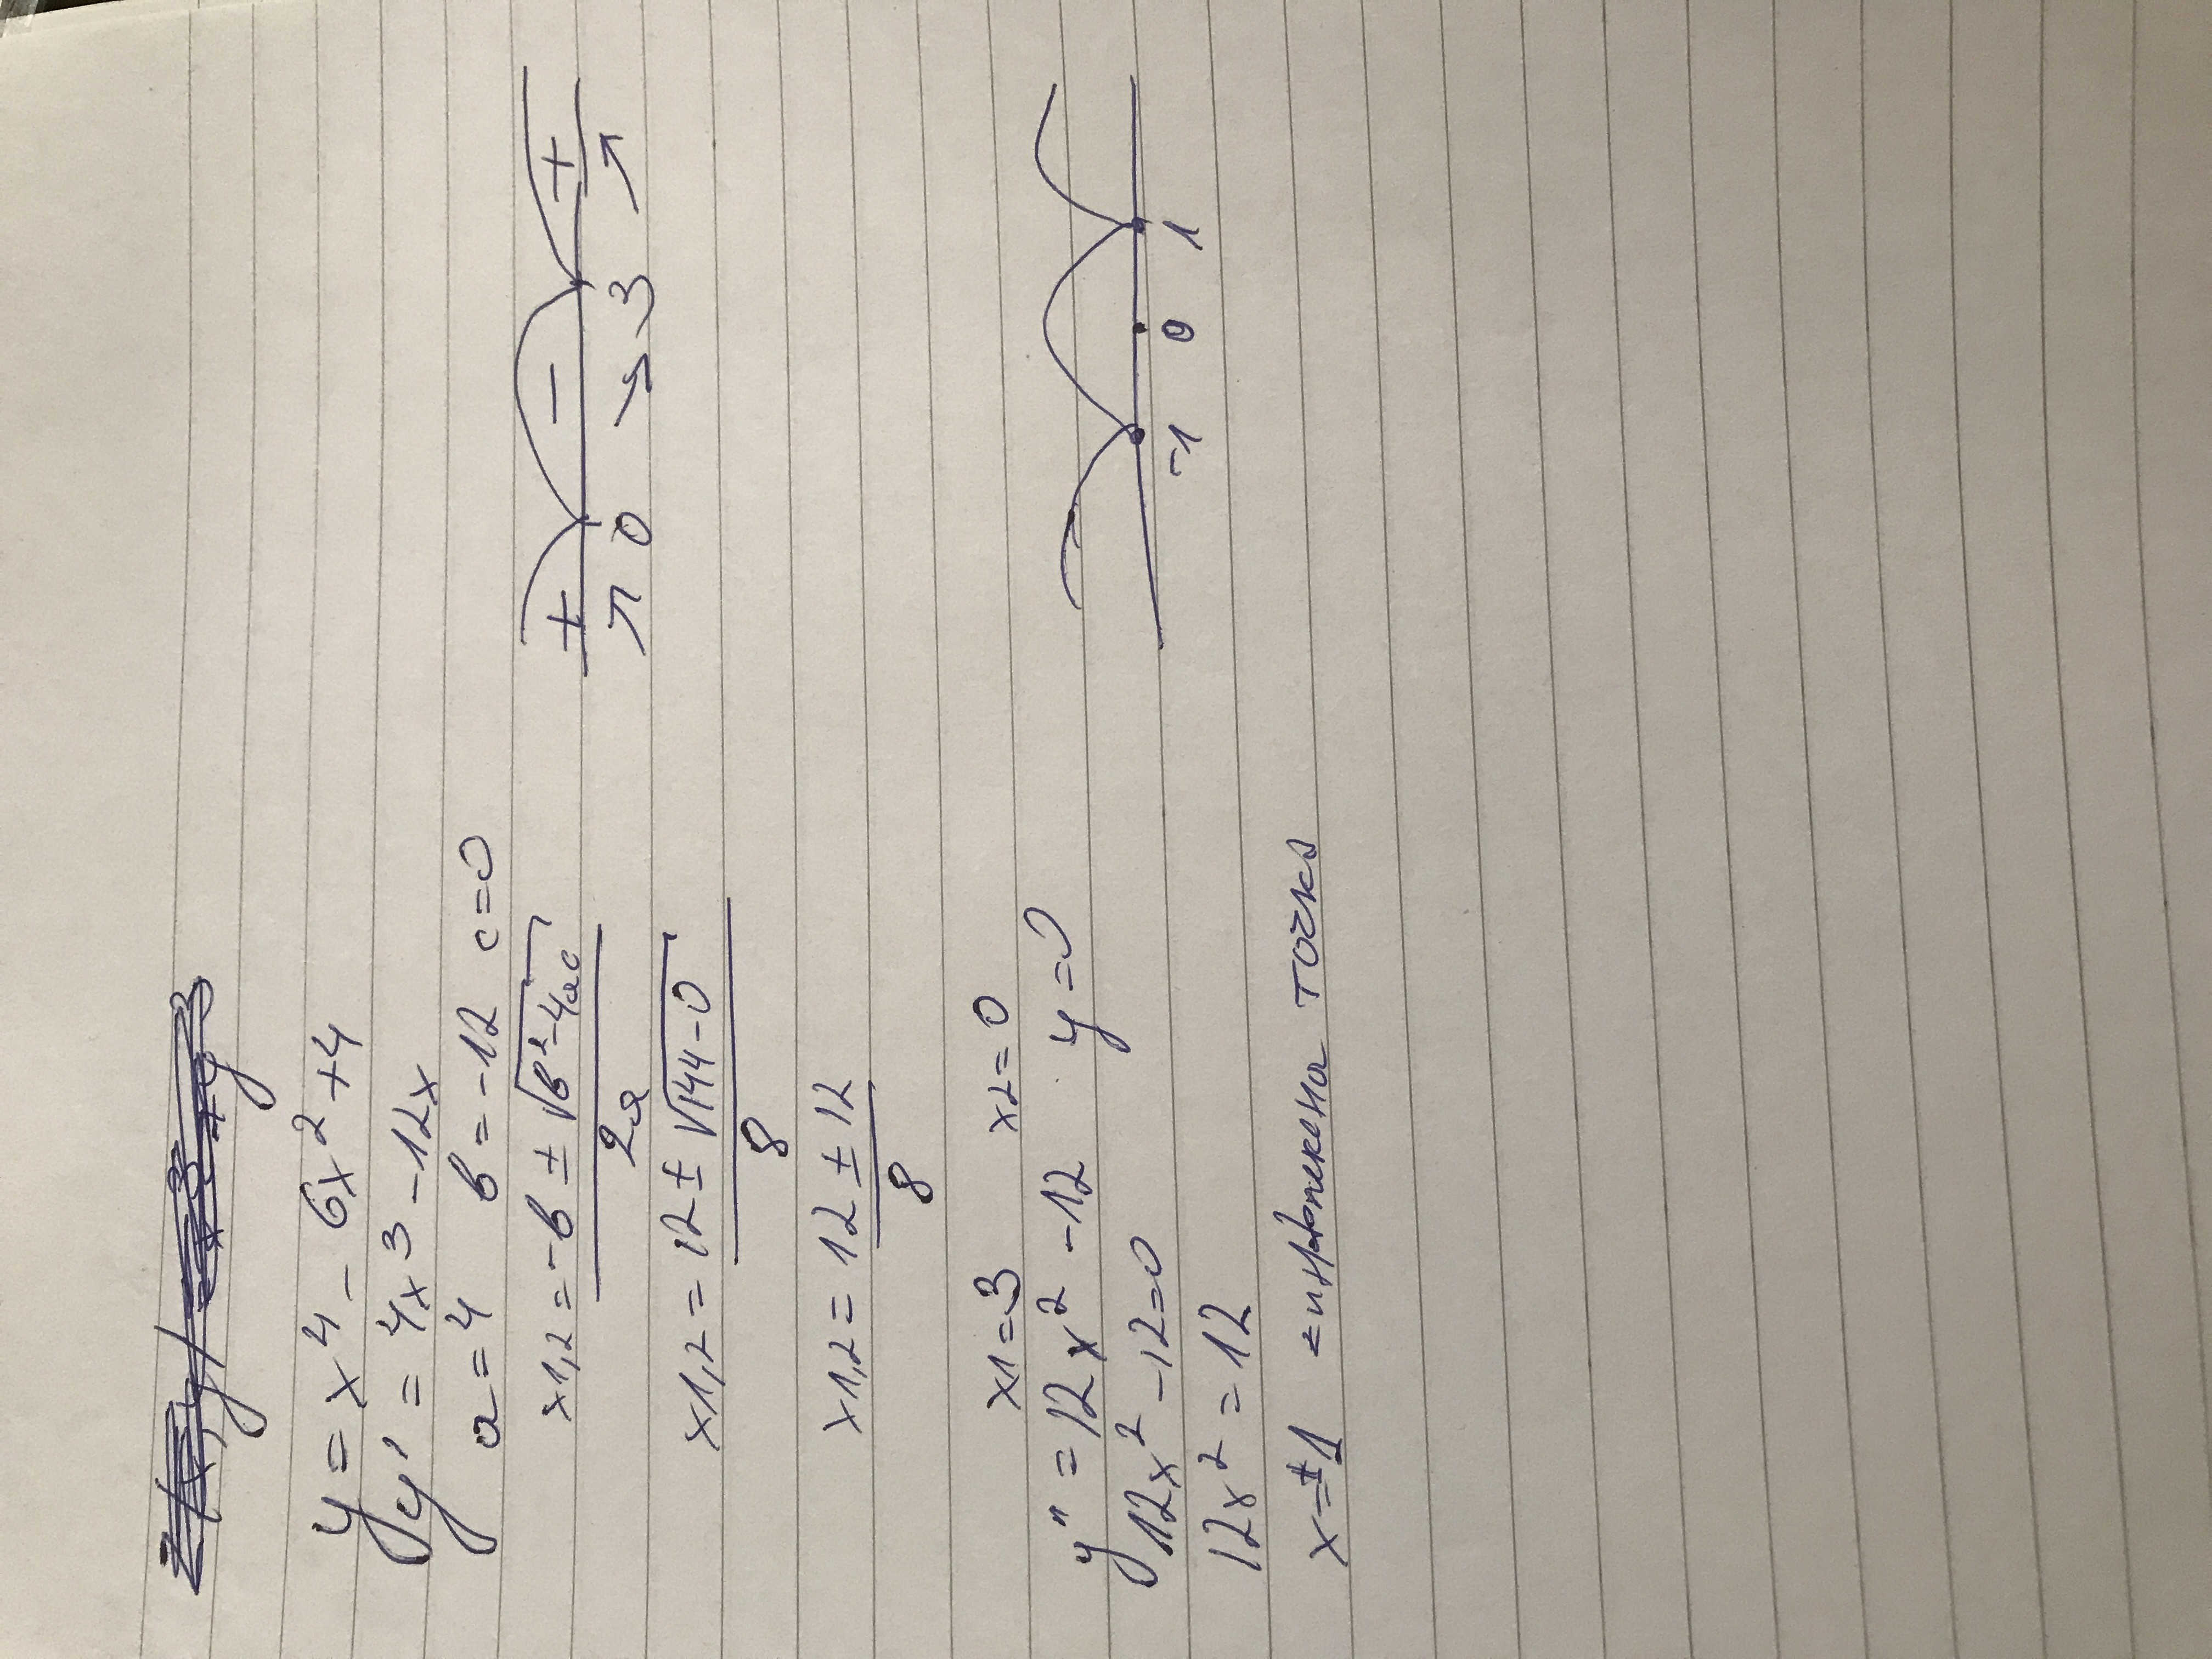 y = x⁴ - 6x² + 4
y' = 4x³ - 12x
a = 4 b = -12 c = 0
x1,2 = -b ± √(b² - 4ac) / 2a
x1,2 = 12 ± √(144 - 0) / 8
x1,2 = 12 ± 12 / 8
x1 = 3 x2 = 0
y'' = 12x² - 12 y = 0
12x² - 12 = 0
12x² = 12
x = ±1 = инфлексна точка
+ - +
↗ 0 ↘ 3 ↗
-1 0 1